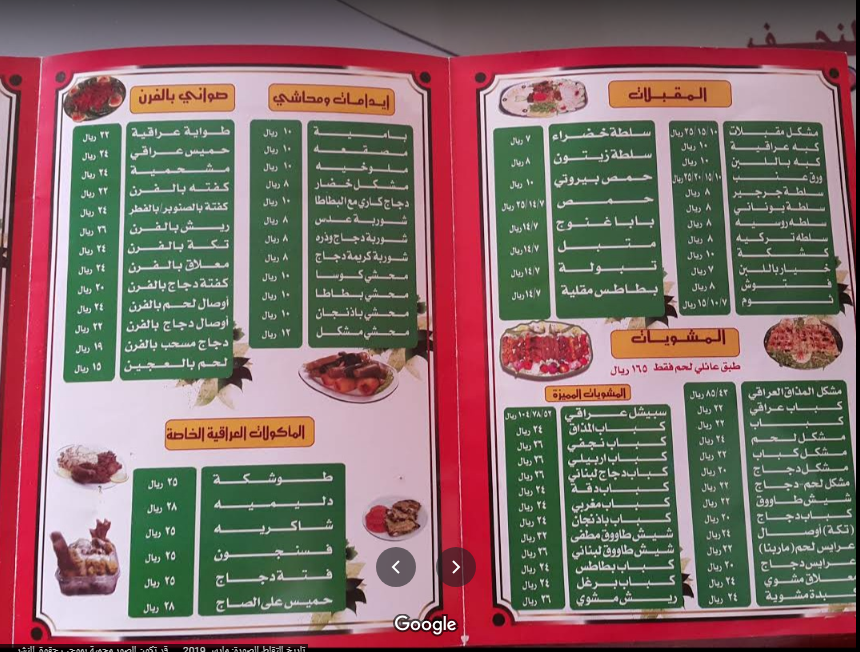 المقبلات
مشكل مقبلات ١٠/١٥/٢٥ ريال
كبه عراقية ١٠ ريال
كبه باللبن ١٠ ريال
ورق عنب ١٠/١٥/٢٠/٢٥ ريال
سلطة جرجير ٨ ريال
سلطة يوناني ٨ ريال
سلطه روسيه ٨ ريال
سلطه تركيه ٨ ريال
كشكة ١٠ ريال
خيار باللبن ٧ ريال
فتوش ٨ ريال
ثوم ١٥/١٠/٧ ريال
سلطة خضراء ٧ ريال
سلطة زيتون ٨ ريال
حمص بيروتي ١٠ ريال
حمص ٢٥/١٤/٧ ريال
بابا غنوج ١٤/٧ ريال
متبل ١٤/٧ ريال
تبولة ١٤/٧ ريال
بطاطس مقلية ١٤/٧ ريال
المشويات
طبق عائلي لحم فقط ١٦٥ ريال
مشكل المذاق العراقي ٨٥/٤٣ ريال
كباب عراقي ٢٢ ريال
كباب ٢٢ ريال
مشكل لحم ٢٤ ريال
مشكل كباب ٢٢ ريال
مشكل دجاج ٢٠ ريال
مشكل لحم - دجاج ٢٢ ريال
شيش طاووق ٢٢ ريال
كباب دجاج ٢٠ ريال
(تكة) أوصال ٢٤ ريال
عرايس لحم (مارينا) ٢٢ ريال
عرايس دجاج ٢٠ ريال
معلاق مشوي ٢٤ ريال
كبدة مشوية ٢٤ ريال
المشويات المميزة
سبيشل عراقي ١٠٤/٧٨/٥٢ ريال
كباب المذاق ٢٤ ريال
كباب نجفي ٢٦ ريال
كباب اربيلي ٢٦ ريال
كباب دجاج لبناني ٢٦ ريال
كباب دقة ٢٤ ريال
كباب مغربي ٢٤ ريال
كباب باذنجان ٢٤ ريال
شيش طاووق مطفى ٢٢ ريال
شيش طاووق لبناني ٢٦ ريال
كباب بطاطس ٢٤ ريال
كباب برغل ٢٤ ريال
ريش مشوي ٢٦ ريال
إيدامات ومحاشي
بامية ١٠ ريال
مصقعه ١٠ ريال
ملوخيه ١٠ ريال
مشكل خضار ٨ ريال
دجاج كاري مع البطاطا ١٠ ريال
شوربة عدس ٨ ريال
شوربة دجاج وذره ٨ ريال
شوربة كريمة دجاج ٨ ريال
محشي كوسا ١٠ ريال
محشي بطاطا ١٠ ريال
محشي باذنجان ١٠ ريال
محشي مشكل ١٢ ريال
صواني بالفرن
طواية عراقية ٢٢ ريال
حميس عراقي ٢٤ ريال
مشحمية ٢٤ ريال
كفته بالفرن ٢٢ ريال
كفتة بالصنوبر/بالفطر ٢٤ ريال
ريش بالفرن ٢٦ ريال
تكة بالفرن ٢٤ ريال
معلاق بالفرن ٢٤ ريال
كفتة دجاج بالفرن ٢٠ ريال
أوصال لحم بالفرن ٢٤ ريال
أوصال دجاج بالفرن ٢٢ ريال
دجاج مسحب بالفرن ١٩ ريال
لحم بالعجين ١٥ ريال
الماكولات العراقية الخاصة
طوشكة ٢٥ ريال
دليميه ٢٨ ريال
شاكريه ٢٥ ريال
فسنجون ٢٥ ريال
فتة دجاج ٢٥ ريال
حميس على الصاج ٢٨ ريال
Google
تاريخ التقاط الصورة: مارس 2019
قد تكون الصور محمية بموجب حقوق النشر